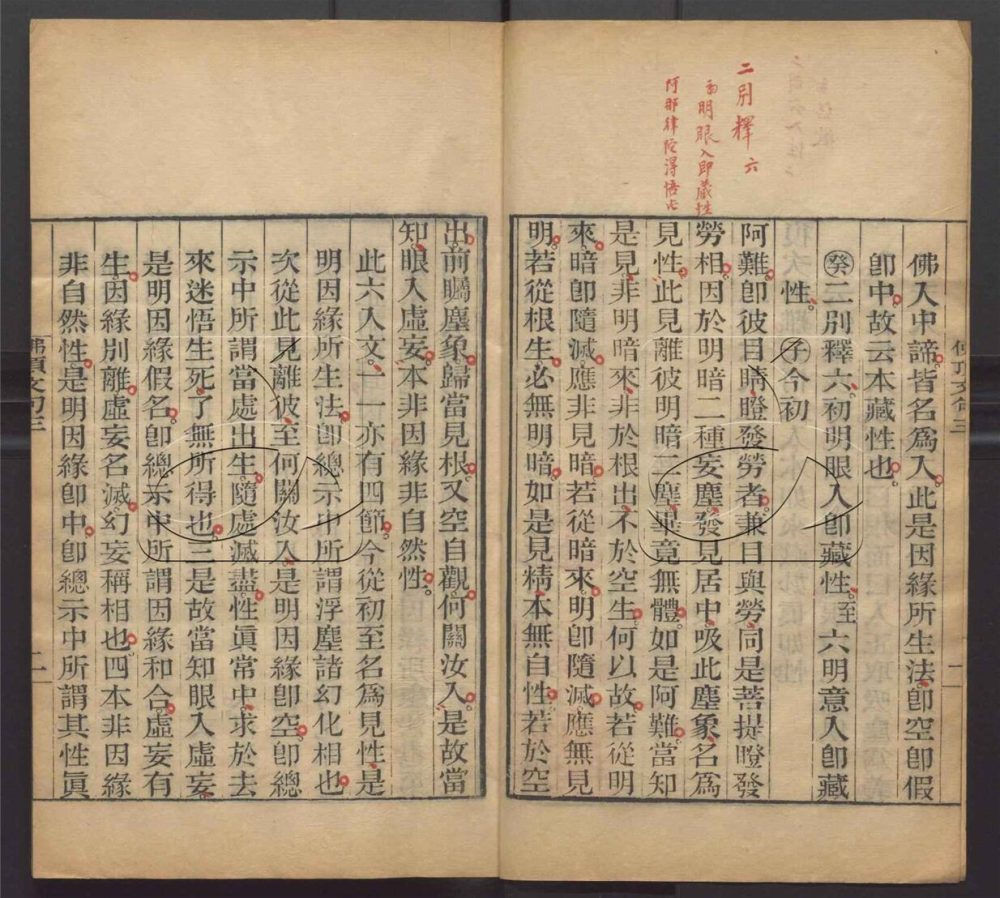 二別釋六
初明眼入即藏性
阿那律陀得悟比
佛入中諦皆名爲入此是因緣所生法卽空卽假
卽中故云本藏性也
㊌二別釋六初明眼入卽藏性至六明意入卽藏
性㊊今初
阿難卽彼目睛瞪發勞者兼目與勞同是菩提瞪發
勞相因於明暗二種妄塵發見居中吸此塵象名爲
見性此見離彼明暗二塵畢竟無體如是阿難當知
是見非明暗來非於根出不於空生何以故若從明
來暗卽隨滅應非見暗若從暗來明卽隨滅應無見
明若從根生必無明暗如是見精本無自性若於空
出前矚塵象歸當見根又空自觀何關汝入是故當
知眼入虛妄本非因緣非自然性
此六入文一一亦有四節今從初至名爲見性是
明因緣所生法卽總示中所謂浮塵諸幻化相也
次從此見離彼至何關汝入是明因緣卽空卽總
示中所謂當處出生隨處滅盡性眞常中求於去
來迷悟生死了無所得也三是故當知眼入虛妄
是明因緣假名卽總示中所謂因緣和合虛妄有
生因緣別離虛妄名滅幻妄稱相也四本非因緣
非自然性是明因緣卽中卽總示中所謂其性眞
佛頂文句三
二